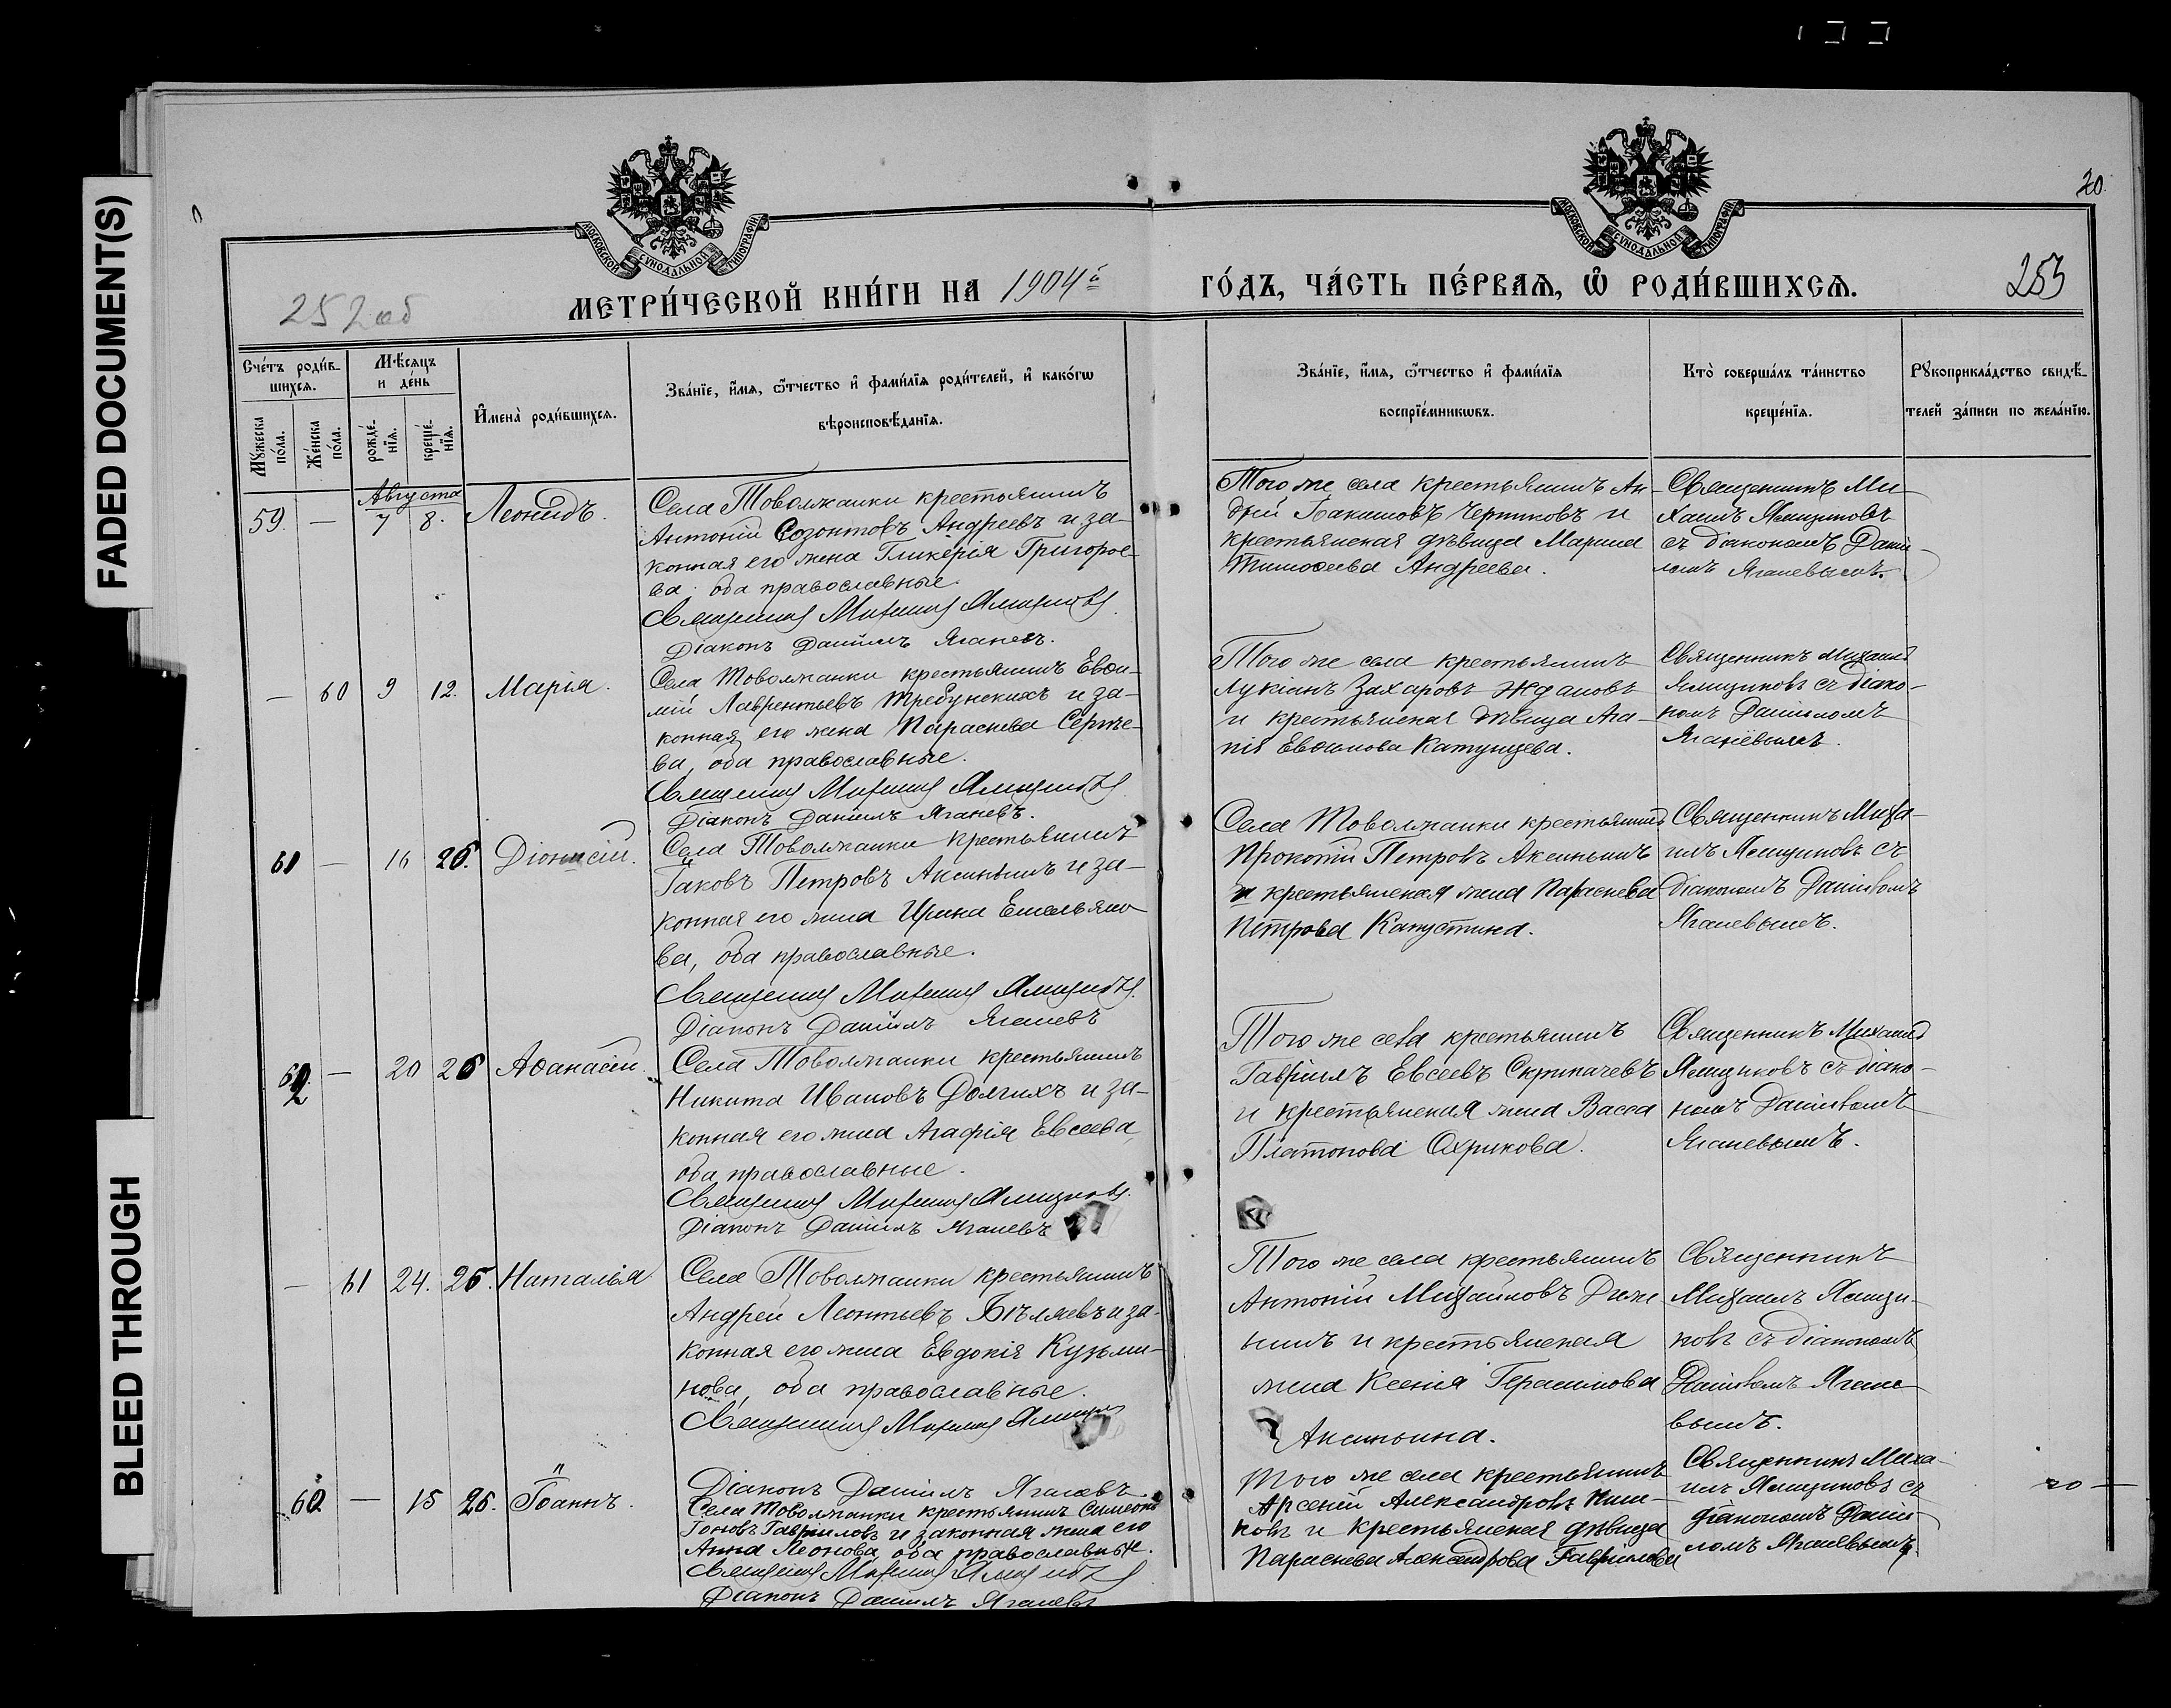 FADED DOCUMENT(S)
BLEED THROUGH
20.
МОСКОВСКОЙ СѴНОДАЛЬНОЙ ТИПОГРАФІИ
МОСКОВСКОЙ СѴНОДАЛЬНОЙ ТИПОГРАФІИ
252 об
МЕТРИ́ЧЕСКОЙ КНИ́ГИ НА 1904й
ГО́ДЪ, ЧА́СТЬ ПЕ́РВАѦ, Ѡ҆ РОДИ́ВШИХСѦ.
253
Сче́тъ роди́в-
шихсѧ.
Мꙋ́жеска
по́ла.
Же́нска
по́ла.
Мѣ́сѧцъ
и де́нь
рожде́-
нїѧ.
креще́-
нїѧ.
И҆мена̀ роди́вшихсѧ.
Зва́нїе, и҆́мѧ, ѻ҆́тчество и҆ фами́лїѧ роди́телей, и҆ како́гѡ
вѣроисповѣ́данїѧ.
Зва́нїе, и҆́мѧ, ѻ҆́тчество и҆ фами́лїѧ
воспрїе́мникѡвъ.
Кто̀ соверша́лъ та́инство
креще́нїѧ.
Рꙋкоприкла́дство свидѣ́-
телей за́писи по жела́нїю.
Августа
59. — 7 8. Леонидъ.
Села Товолжанки крестьянинъ
Антоній Созонтовъ Андреевъ и за-
конная его жена Гликерія Григорье-
ва, оба православные.
Священникъ Михаилъ Ямщиковъ
Діаконъ Даніилъ Яганевъ.
Того же села крестьянинъ Ан-
дрей Чернковъ и
крестьянская дѣвица Марина
Тимоѳеева Андреева.
Священникъ Ми-
хаилъ Ямщиковъ
съ діакономъ Дании-
ломъ Яганевымъ.
— 60 9 12. Марія.
Села Товолжанки крестьянинъ Евѳи-
мій Лаврентьевъ Требунскихъ и за-
конная его жена Параскева Сергѣе-
ва, оба православные.
Священникъ Михаилъ Ямщиковъ
Діаконъ Даніилъ Яганевъ.
Того же села крестьянинъ
Лукіанъ Захаровъ Ждановъ
и крестьянская дѣвица Ага-
пія Евѳимова Катунцева.
Священникъ Михаилъ
Ямщиковъ съ діако-
номъ Даніиломъ
Яганевымъ.
61 — 16 26. Діонисій.
Села Товолжанки крестьянинъ
Іаковъ Петровъ Аксиньинъ и за-
конная его жена Ирина Емельяно-
ва, оба православные.
Священникъ Михаилъ Ямщиковъ.
Діаконъ Даніилъ Яганевъ
Села Товолжанки крестьянинъ
Прокопій Петровъ Аксиньинъ
и крестьянская жена Параскева
Петрова Капустина.
Священникъ Миха-
илъ Ямщиковъ съ
діакономъ Даніиломъ
Яганевымъ.
62 — 20 26 Аѳанасій.
Села Товолжанки крестьянинъ
Никита Ивановъ Долгихъ и за-
конная его жена Агафія Евсеева,
оба православные.
Священникъ Михаилъ Ямщиковъ.
Діаконъ Даніилъ Яганевъ
Того же села крестьянинъ
Гавріилъ Евсеевъ Скрипачевъ
и крестьянская жена Васса
Платонова Охрикова.
Священникъ Михаилъ
Ямщиковъ съ діако-
номъ Даніиломъ
Яганевымъ.
— 61 24. 26. Наталія
Села Товолжанки крестьянинъ
Андрей Леонтьевъ Бѣляевъ и за-
конная его жена Евдокія Кузьми-
нова, оба православные.
Священникъ Михаилъ Ямщиковъ
Діаконъ Даніилъ Яганевъ
Того же села крестьянинъ
Антоній Михайловъ
нинъ и крестьянская
жена Ксенія Герасимова
Аксиньина.
Священникъ
Михаилъ Ямщи-
ковъ съ діакономъ
Даніиломъ Ягане-
вымъ.
60 — 15 26. Іоаннъ.
Села Товолжанки крестьянинъ Симеонъ
Іоновъ Гавриловъ и законная жена его
Анна Леонова, оба православные.
Священникъ Михаилъ Ямщиковъ
Діаконъ Даніилъ Яганевъ
Того же села крестьянинъ
Арсеній Александровъ
ковъ и крестьянская дѣвица
Параскева Александрова Гаврилова
Священникъ Миха-
илъ Ямщиковъ съ
діакономъ Дании-
ломъ Яганевымъ
20 —